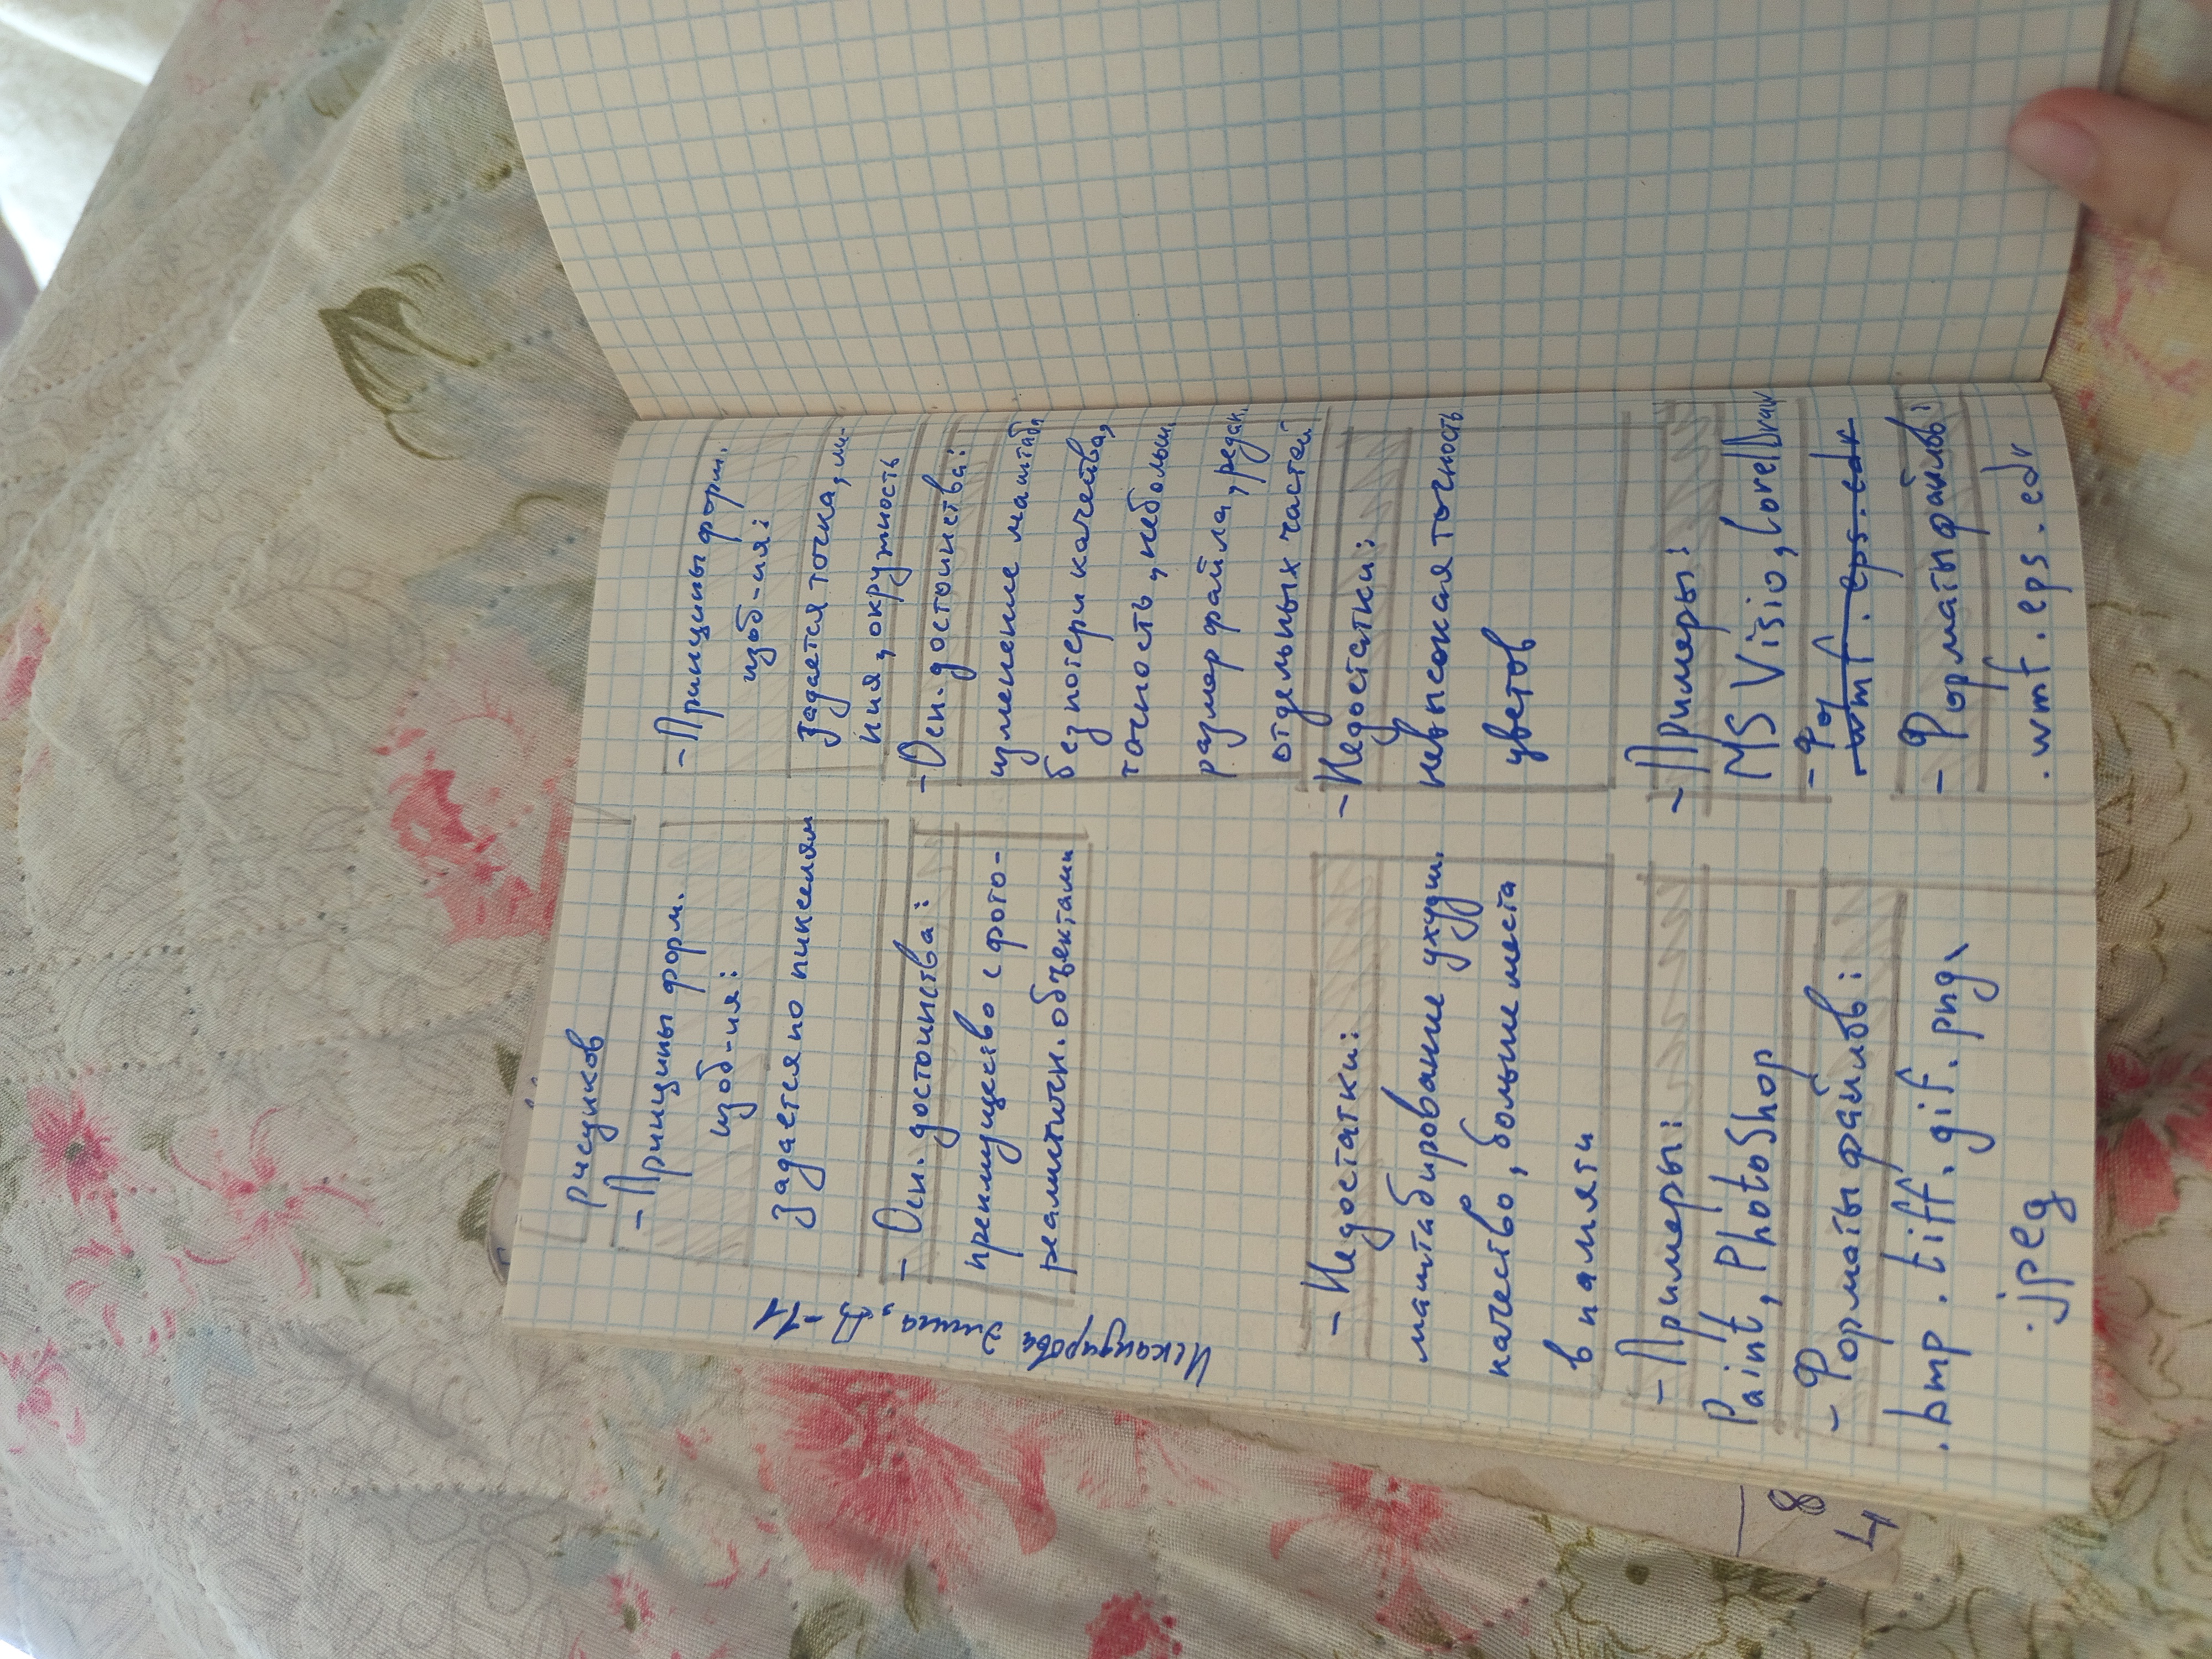 Искандирова Элина, Д-11
рисунков
- Принципы форм.
изоб-ия:
задается по пикселям
- Осн. достоинства:
преимущество с фото-
реалистичн. объектами
- Недостатки:
масштабирование ухудш.
качество, больше места
в памяти
- Примеры:
Paint, PhotoShop
- Форматы файлов:
.bmp .tiff .gif .png,
.jpeg
- Принципы форм.
изоб-ия:
задается точка, ли-
ния, окружность
- Осн. достоинства:
изменение масштаба
без потери качества,
точность, небольш.
размер файла, редак.
отдельных частей
- Недостатки:
невысокая точность
цветов
- Примеры:
MS Visio, CorelDraw
- Фо
.wmf .eps .cdr
- Форматы файлов:
.wmf .eps .cdr
8
4